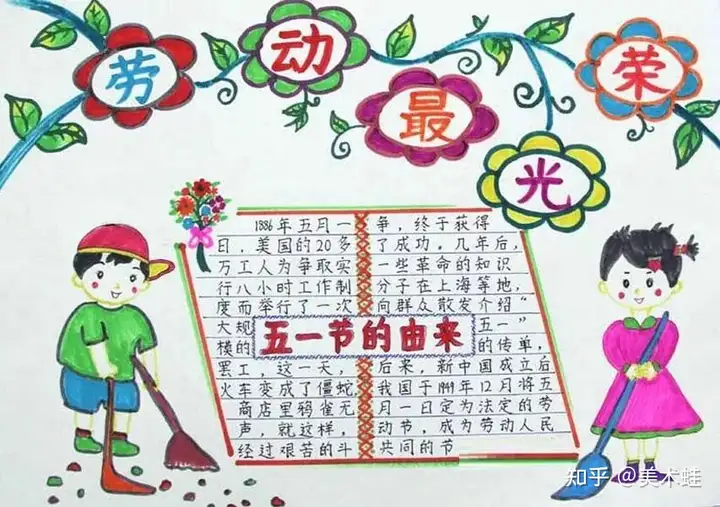 劳动最光荣
五一节的由来
1886年五月一
日，美国的20多
万工人为争取实
行八小时工作制
度而举行了一次
大规
模的
罢工，这一天，
火车变成了僵蛇，
商店里鸦雀无
声，就这样，
经过艰苦的斗
争，终于获得
了成功。几年后，
一些革命的知识
分子在上海等地，
向群众散发介绍“
五一”
的传单，
后来，新中国成立后
我国于1949年12月将五
月一日定为法定的劳
动节，成为劳动人民
共同的节
知乎 @美术蛙